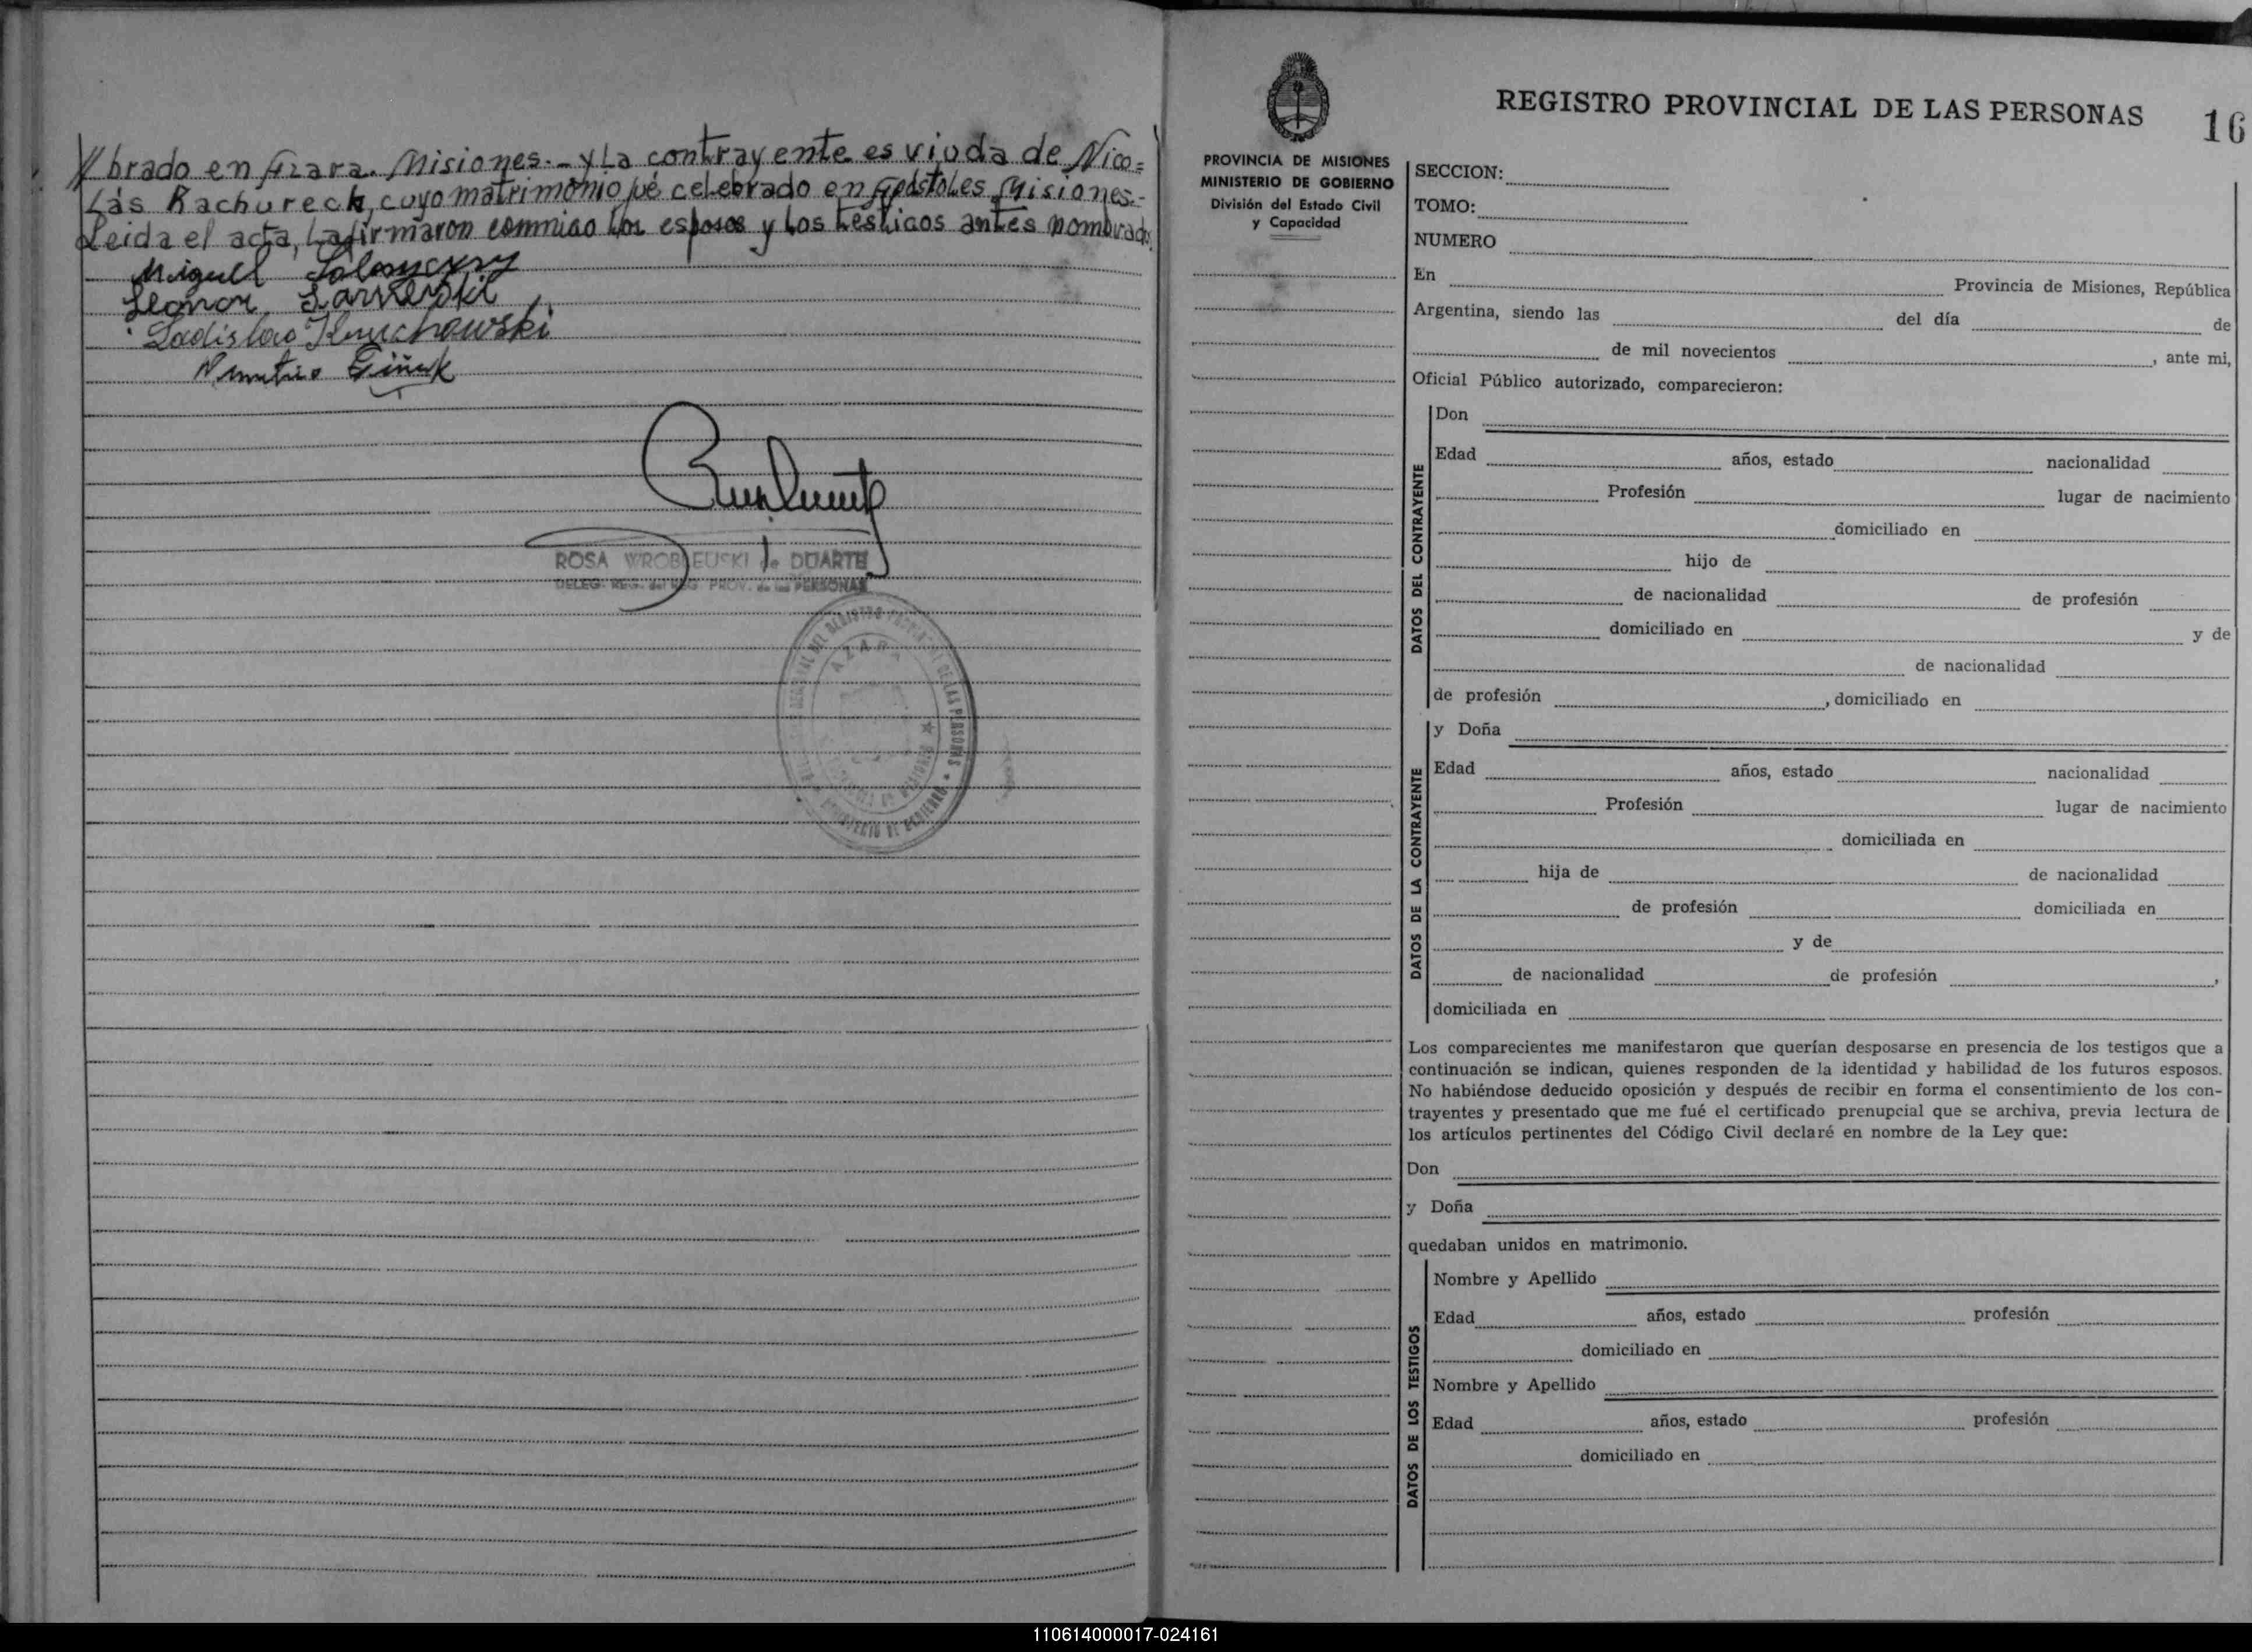 brado en Azara. Misiones.- y La contrayente es viuda de Nico=
Lás Rachureck, cuyo matrimonio fué celebrado en Apóstoles Misiones.-
Leida el acta, La firmaron conmigo los esposos y Los testigos antes nombrados
Miguel
Leonor
Ladislao
ROSA WROBLEUSKI de DUARTE
DELEG. REG. del REG. PROV. de las PERSONAS
AZARA
REGISTRO PROVINCIAL DE LAS PERSONAS
MINISTERIO DE GOBIERNO
REGISTRO PROVINCIAL DE LAS PERSONAS
16
PROVINCIA DE MISIONES
MINISTERIO DE GOBIERNO
División del Estado Civil
y Capacidad
SECCION:
TOMO:
NUMERO
En Provincia de Misiones, República
Argentina, siendo las del día de
de mil novecientos , ante mi,
Oficial Público autorizado, comparecieron:
DATOS DEL CONTRAYENTE
Don
Edad años, estado nacionalidad
Profesión lugar de nacimiento
domiciliado en
hijo de
de nacionalidad de profesión
domiciliado en y de
de nacionalidad
de profesión , domiciliado en
DATOS DE LA CONTRAYENTE
y Doña
Edad años, estado nacionalidad
Profesión lugar de nacimiento
domiciliada en
hija de de nacionalidad
de profesión domiciliada en
y de
de nacionalidad de profesión ,
domiciliada en
Los comparecientes me manifestaron que querían desposarse en presencia de los testigos que a
continuación se indican, quienes responden de la identidad y habilidad de los futuros esposos.
No habiéndose deducido oposición y después de recibir en forma el consentimiento de los con-
trayentes y presentado que me fué el certificado prenupcial que se archiva, previa lectura de
los artículos pertinentes del Código Civil declaré en nombre de la Ley que:
Don
y Doña
quedaban unidos en matrimonio.
DATOS DE LOS TESTIGOS
Nombre y Apellido
Edad años, estado profesión
domiciliado en
Nombre y Apellido
Edad años, estado profesión
domiciliado en
110614000017-024161